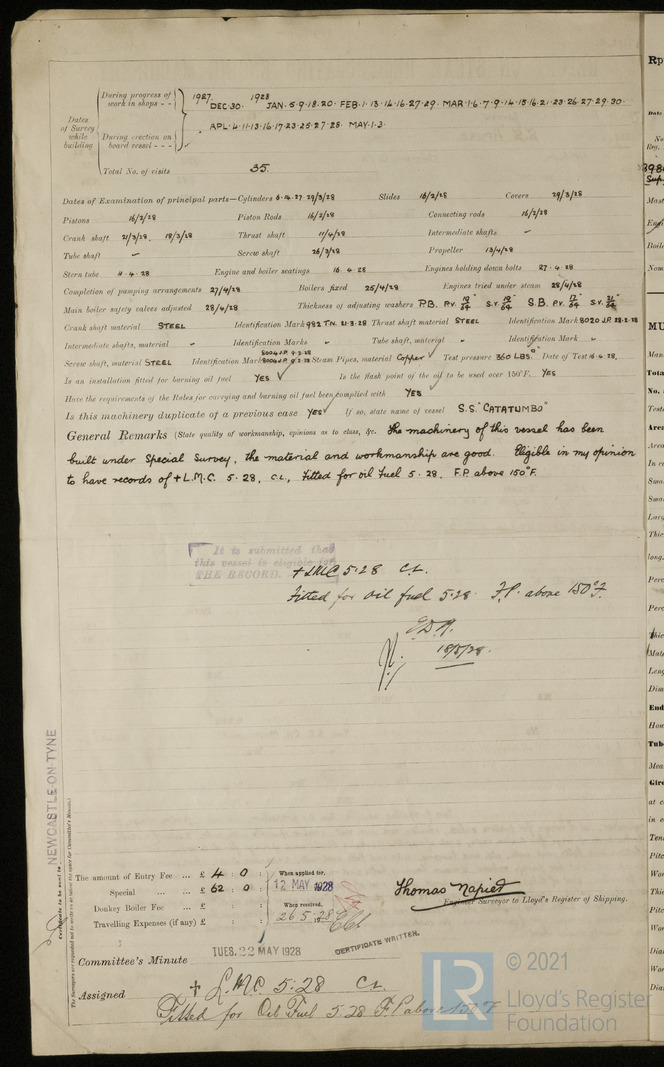 During progress of work in shops - -
1927 DEC. 30. 1928 JAN. 5. 9. 18. 20. FEB. 1. 13. 14. 16. 27. 29. MAR. 1. 6. 7. 9. 14. 15. 16. 21. 23. 26. 27. 29. 30.
Dates of Survey while building
During erection on board vessel - - -
APL. 4. 11. 13. 16. 17. 23. 25. 27. 28. MAY. 1. 3.
Total No. of visits 35.
Dates of Examination of principal parts—Cylinders 6.14.27.29/3/28 Slides 16/2/28 Covers 29/3/28
Pistons 16/2/28 Piston Rods 16/2/28 Connecting rods 16/2/28
Crank shaft 21/3/28, 18/3/28 Thrust shaft 11/4/28 Intermediate shafts -
Tube shaft - Screw shaft 26/3/28 Propeller 13/4/28
Stern tube 11.4.28 Engine and boiler seatings 16.4.28 Engines holding down bolts 27.4.28
Completion of pumping arrangements 27/4/28 Boilers fixed 25/4/28 Engines tried under steam 28/4/28
Main boiler safety valves adjusted 28/4/28 Thickness of adjusting washers P.B. P.V. S.V. S.B. P.V. S.V.
Crank shaft material STEEL Identification Mark 982 T.N. 21.3.28 Thrust shaft material STEEL Identification Mark 8020 J.P. 28.2.28
Intermediate shafts, material " Identification Marks " Tube shaft, material " Identification Mark "
Screw shaft, material STEEL Identification Mark 8004 J.P. 9.2.28 Steam Pipes, material Copper Test pressure 360 LBS. Date of Test 16.4.28.
Is an installation fitted for burning oil fuel YES Is the flash point of the oil to be used over 150°F. YES
Have the requirements of the Rules for carrying and burning oil fuel been complied with YES
Is this machinery duplicate of a previous case YES If so, state name of vessel S.S. "CATATUMBO"
General Remarks (State quality of workmanship, opinions as to class, &c. The machinery of this vessel has been
built under Special Survey, the material and workmanship are good. Eligible in my opinion
to have records of + L.M.C. 5.28, C.L., Fitted for oil Fuel 5.28, F.P. above 150°F.
It is submitted that
this vessel is eligible for
THE RECORD.
+ LMC 5.28 C.L.
Fitted for oil fuel 5.28. F.P. above 150°F.
18/5/28.
NEWCASTLE-ON-TYNE
Certificate to be sent to
The Surveyors are requested not to write on or below the space for Committee's Minute.
The amount of Entry Fee ... £ 4 : 0 :
Special ... £ 62 : 0 :
Donkey Boiler Fee ... £ : :
Travelling Expenses (if any) £ : :
When applied for,
12 MAY 1928
When received,
26 5.28
Thomas Napier
Engineer Surveyor to Lloyd's Register of Shipping.
Committee's Minute TUES. 22 MAY 1928
CERTIFICATE WRITTEN.
Assigned + L.M.C. 5.28 C.L.
Fitted for Oil Fuel 5.28 F.P. above 150°F
© 2021
LR
Lloyd's Register
Foundation